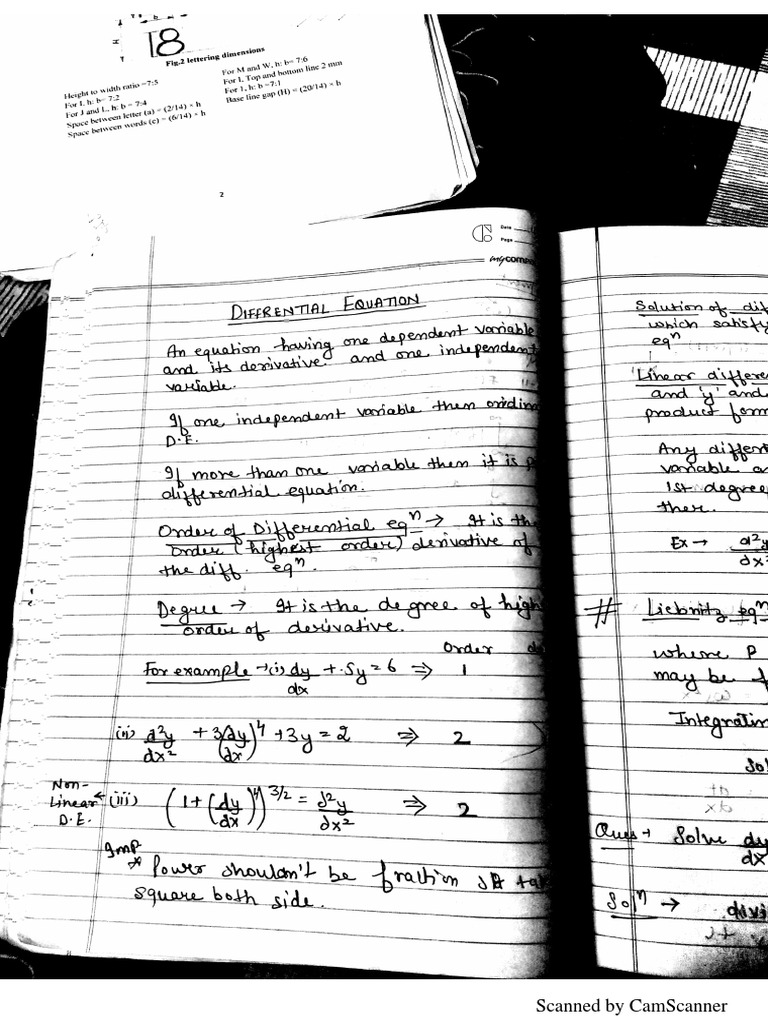 18
Fig.2 lettering dimensions
Height to width ratio =7:5
For I, h: b= 7:2
For J and L, h: b = 7:4
Space between letter (a) = (2/14) × h
Space between words (e) = (6/14) × h
For M and W, h: b= 7:6
For I, Top and bottom line 2 mm
For 1, h: b =7:1
Base line gap (H) = (20/14) × h
2
Date
Page
DIFFRENTIAL EQUATION
An equation having one dependent variable
and its derivative and one independent
variable.
If one independent variable then
D.E.
If more than one variable then it is
differential equation.
Order of Differential eqⁿ → It is the
order (highest order) derivative of
the diff. eqⁿ.
Degree → It is the degree of
order of derivative.
Order
For example → (i) dy/dx + 5y = 6 ⇒ 1
(ii) d²y/dx² + 3(dy/dx)⁴ + 3y = 2 ⇒ 2
Non-Linear D.E. ← (iii) (1 + (dy/dx)⁴)^3/2 = d²y/dx² ⇒ 2
Imp
* Power shouldn't be fraction
square both side.
Solution of
which
eqⁿ
Linear
and 'y' and
product form
Any
variable
1st degree
ther.
Ex → d²y/dx²
# Liebnitz eqⁿ
where P
may be
Ques → Solve dy/dx
Solⁿ →
Scanned by CamScanner